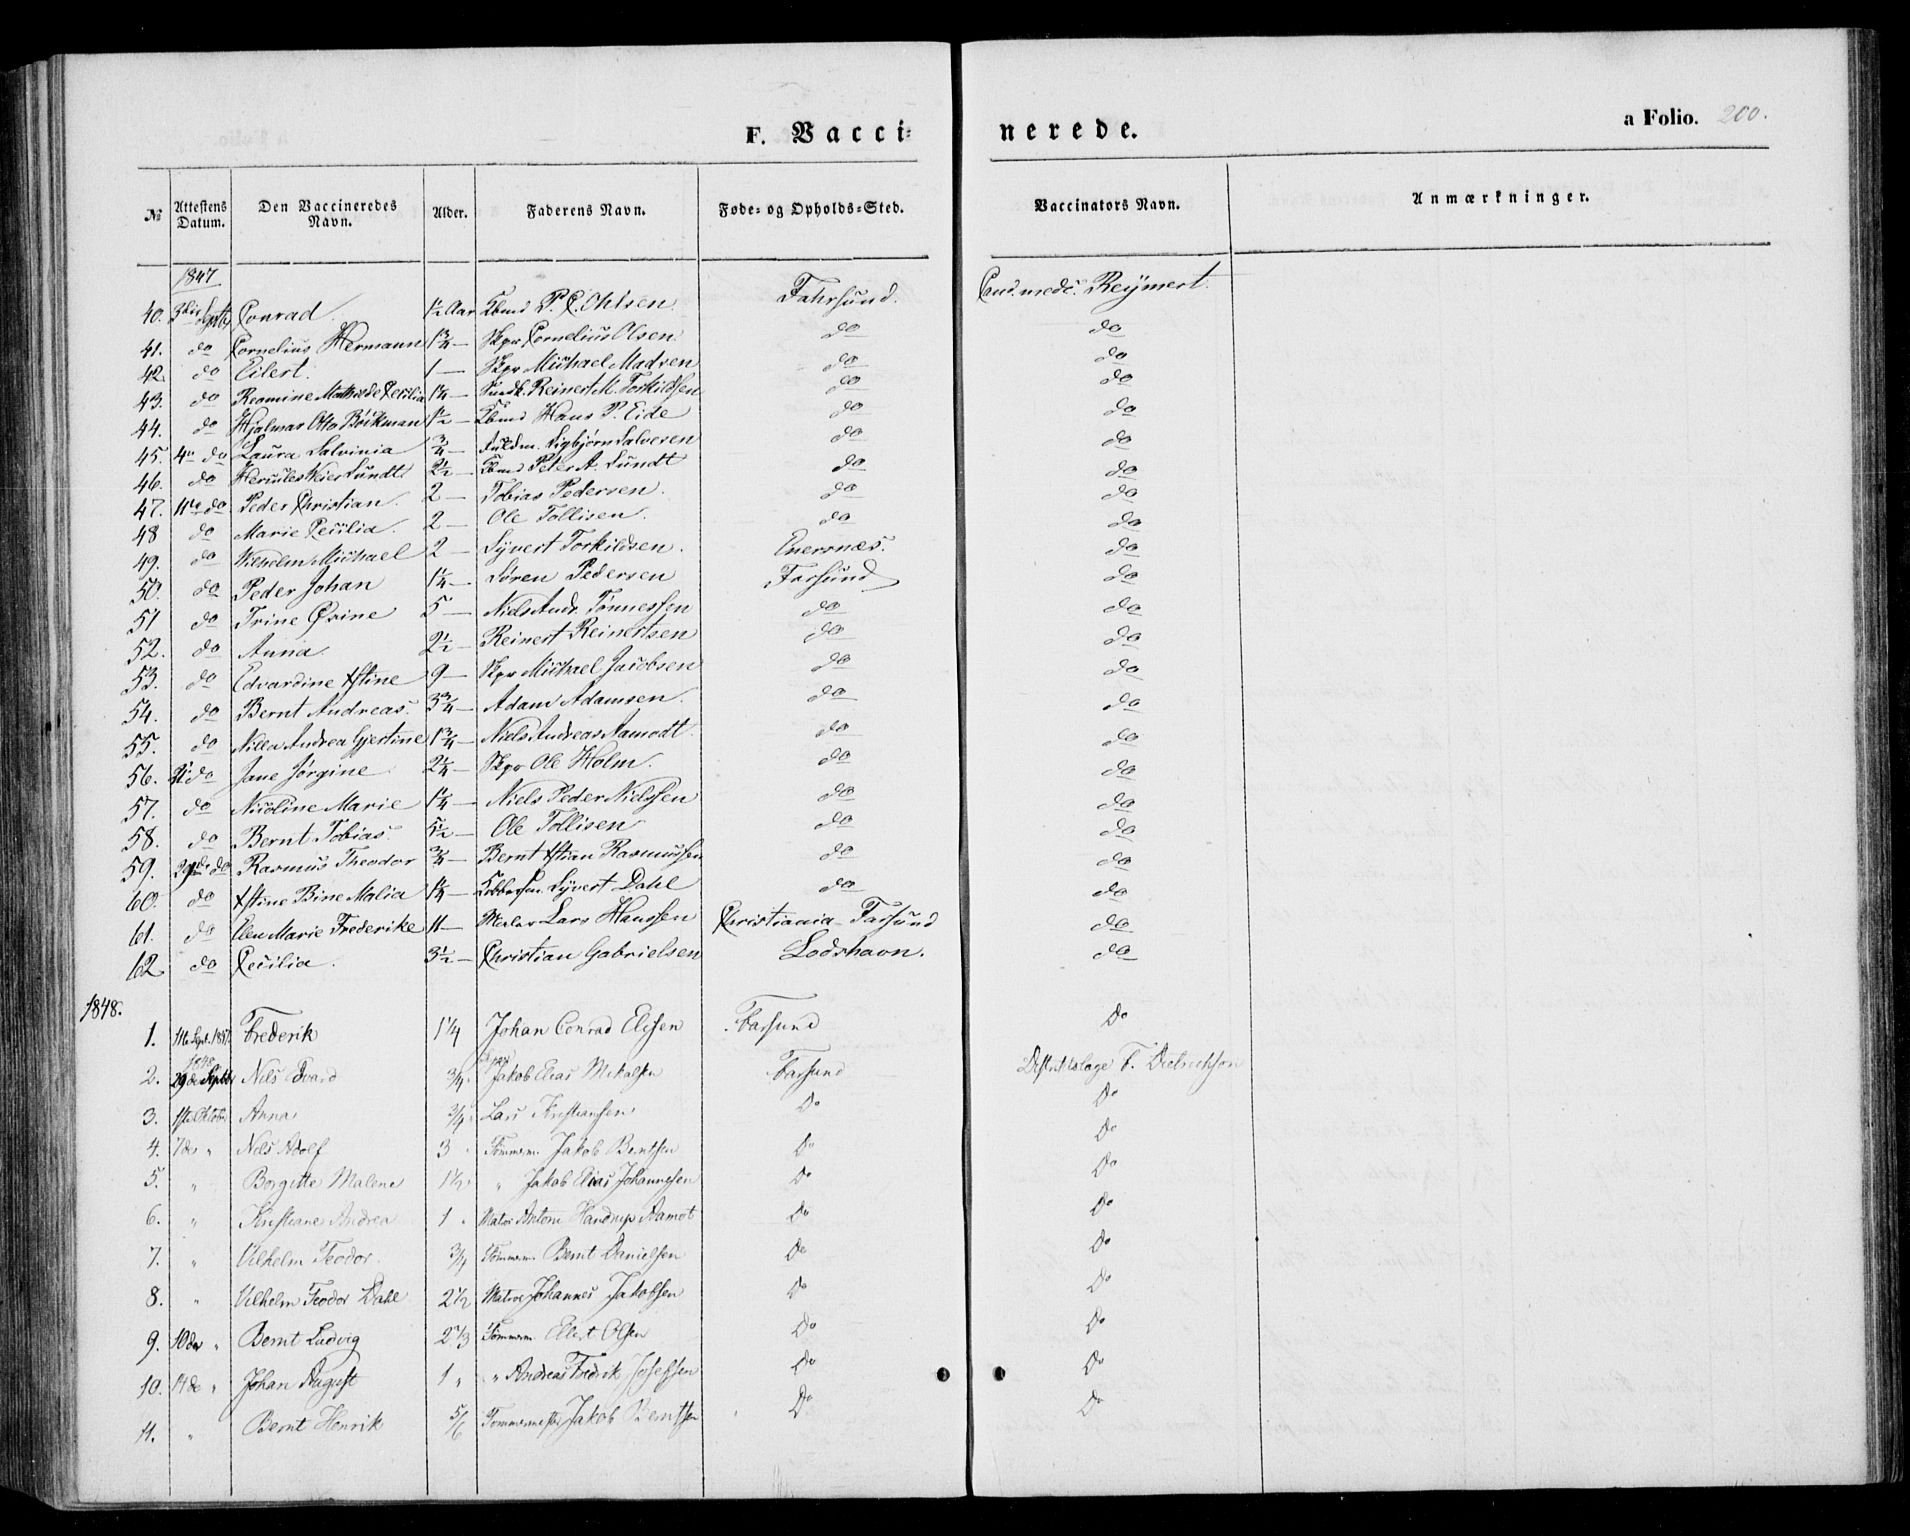 F. Vacci-
nerede.
a Folio. 200.
№ Attestens Datum. Den Vaccineredes Navn. Alder. Faderens Navn. Føde- og Opholds-Sted. Vaccinators Navn. Anmærkninger.
1847
40. Septb Conrad. 1½ Aar Kbmd P. C. Ohlsen Fahrsund. Cand. medc. Reymert.
41. do Cornelius Hermann 1¾ — Skpr Cornelius Olsen. do do
42. do Eilert. 1 — Skpr Michael Madsen do do
43. do Reamine Mathilde Cecilia 1¼ — Reinert M. Torkildsen do do
44. do Hjalmar Otto Bøckman 1½ — Kbmd Hans P. Eide do do
45. 4de do Laura Salvinia ¾ — Sigbjørn Salvesen do do
46. do Hercules Weier Lundt 2½ — Kbmd Peter A. Lundt do do
47. 11te do Peder Christian. 2 — Tobias Pedersen. do do
48 do Marie Cecilia. 2 — Ole Tollisen. do do
49. do Wilhelm Michael 2 — Syvert Torkildsen. Enersnes. do
50. do Peder Johan 1¼ — Søren Pedersen Farsund do
51 do Trine Osine 5 — Niels Andr. Tønnessen do do
52. do Anna. 2½ — Reinert Reinertsen do do
53. do Edvardine Xstine 9 — Skpr Michael Jacobsen do do
54. do Bernt Andreas. 3¾ — Adam Adamsen. do do
55. do Nilla Andrea Gjertine 1¾ — Niels Andreas Aamodt. do do
56. do Jane Jørgine 2¼ — Skpr Ole Holm. do do
57. do Nicoline Marie 1¼ — Niels Peder Nielsen do do
58. do Bernt Tobias. 5½ — Ole Tollisen do do
59. 29de do Rasmus Theodor ¾ — Bernt Xstian Rasmussen do do
60. do Xstine Bine Malia 1¼ — Syvert Dahl do do
61. do Elen Marie Frederike 11 — Lars Hanssen Christiania - Farsund do
62. do Cecilia. 3½ — Christian Gabrielsen Lodshavn. do
1848.
1. 11te Sept. 1847 Frederik 1¼ Johan Conrad Elissen Farsund Do
2. 1848 29de Septbr Nils Edvard ¾ Skpr Jakob Elias Mikalsen Farsund F. Dietrichson
3. 1ste Oktober Anna ¾ Lars Kristiansen Do Do
4. 7de " Nils Adolf 3 Tømmerm. Jakob Berntsen Do Do
5. " Borgitte Malene 1½ " Jakob Elias Johannesen Do Do
6. " Kristiane Andrea 1 " Matros Antoni Handrup Aamot Do Do
7. " Vilhelm Teodor. ¾ Tømmerm. Bernt Danielsen Do Do
8. " Vilhelm Teodor Dahl 2½ Matros Johannes Jakobsen Do Do
9. 10de " Bernt Ludvig 2⅓ Tømmerm. Ellert Olsen Do Do
10. 14de " Johan August 1 " " Andreas Fredrik Josefsen Do Do
11. " Bernt Henrik 5/6 Tømmermester Jakob Berntsen Do Do